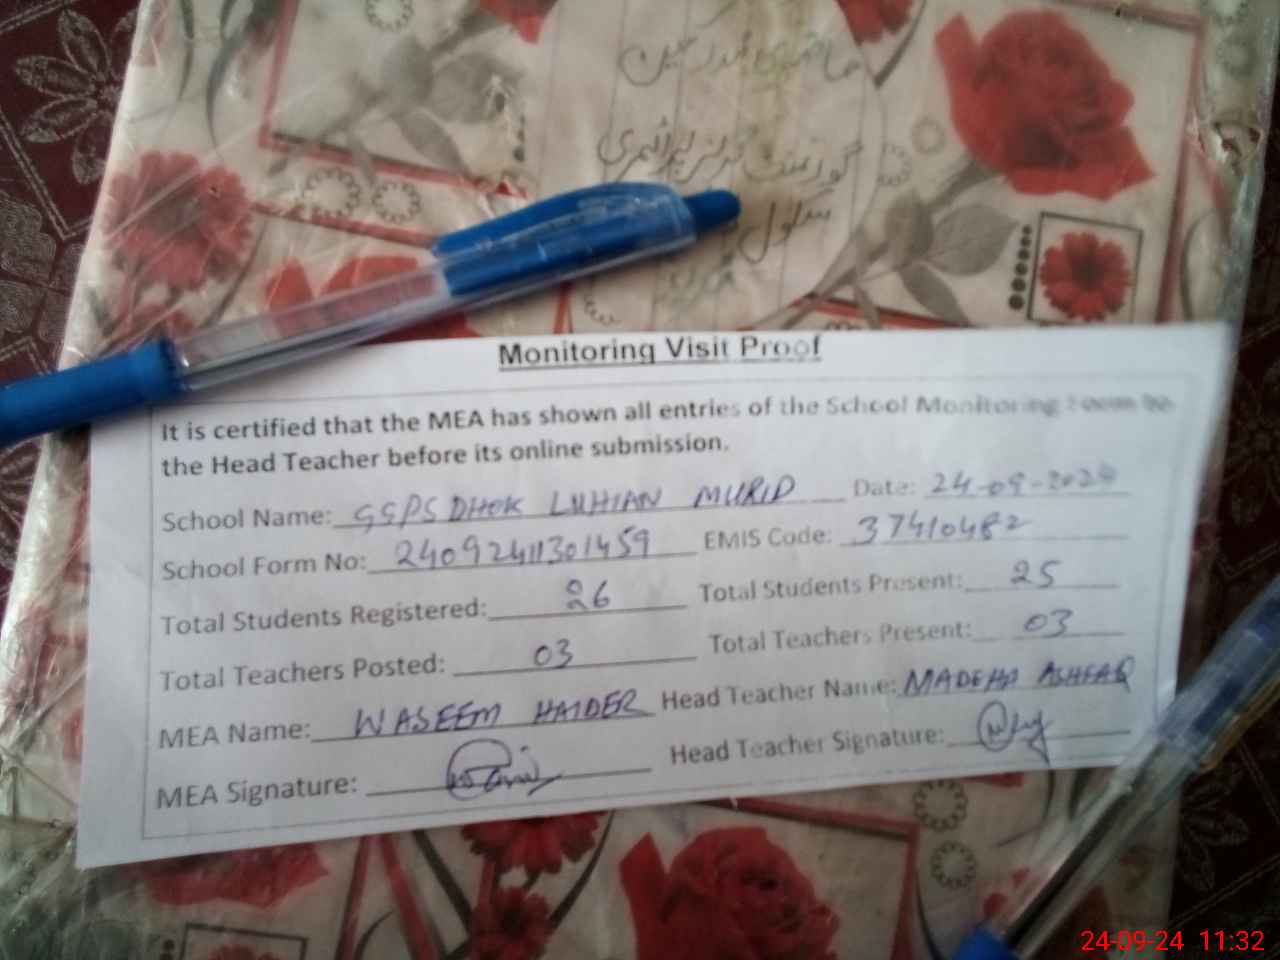 حاضری مدرسین
گورنمنٹ گرلز پرائمری
سکول
Monitoring Visit Proof
It is certified that the MEA has shown all entries of the School Monitoring Form to
the Head Teacher before its online submission.
School Name: GGPS DHOK LUHIAN MURID Date: 24-09-2024
School Form No: 24092411301459 EMIS Code: 37410482
Total Students Registered: 26 Total Students Present: 25
Total Teachers Posted: 03 Total Teachers Present: 03
MEA Name: WASEEM HAIDER Head Teacher Name: MADEHA ASHFAQ
MEA Signature: Head Teacher Signature:
24-09-24 11:32